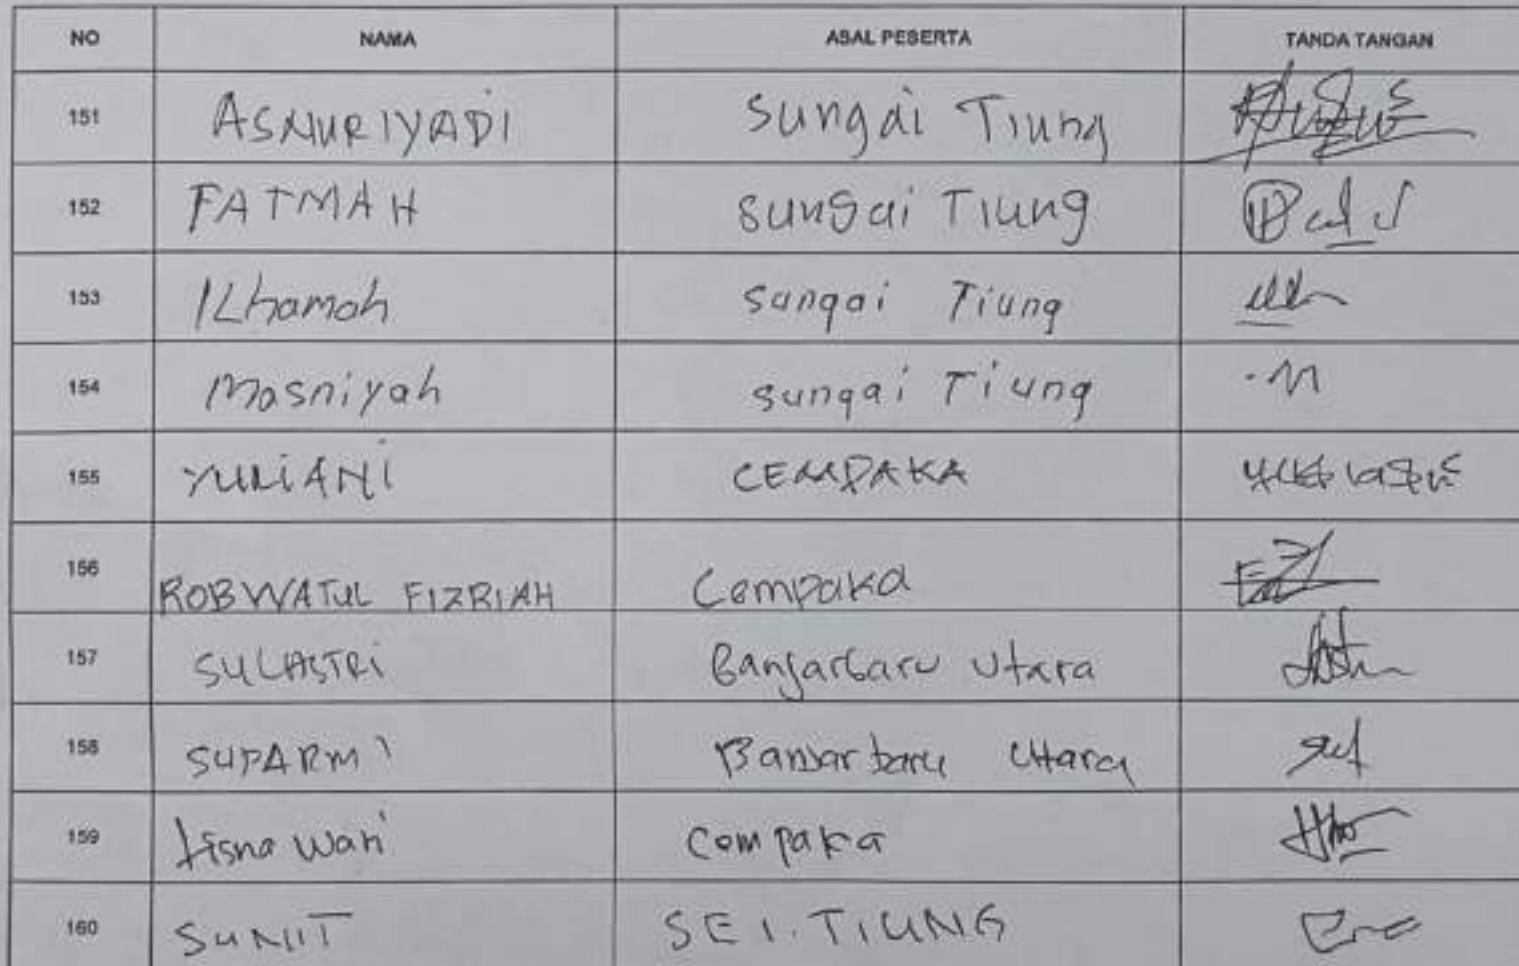 NO NAMA ASAL PESERTA TANDA TANGAN
151 ASNURIYADI Sungai Tiung
152 FATMAH Sungai Tiung
153 ILhamah Sungai Tiung
154 Masniyah Sungai Tiung
155 YULiANi CEMPAKA
156 ROBWATUL FIZRIAH Cempaka
157 SULASTRi Banjarbaru Utara
158 SUPARMI Banjarbaru Utara
159 Wati Cempaka
160 SUNIIT SEI. TIUNG